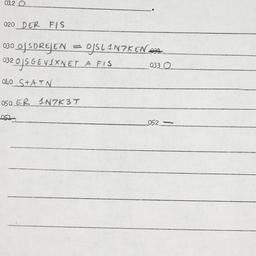 012 O
020 DER FIS
030 O/SDREJEN = O/SL1N7KEN 031
032 O/SGEV1XNET A FIS 033 O
040 S+ATN
050 ER 1N7K3T
051
052 —